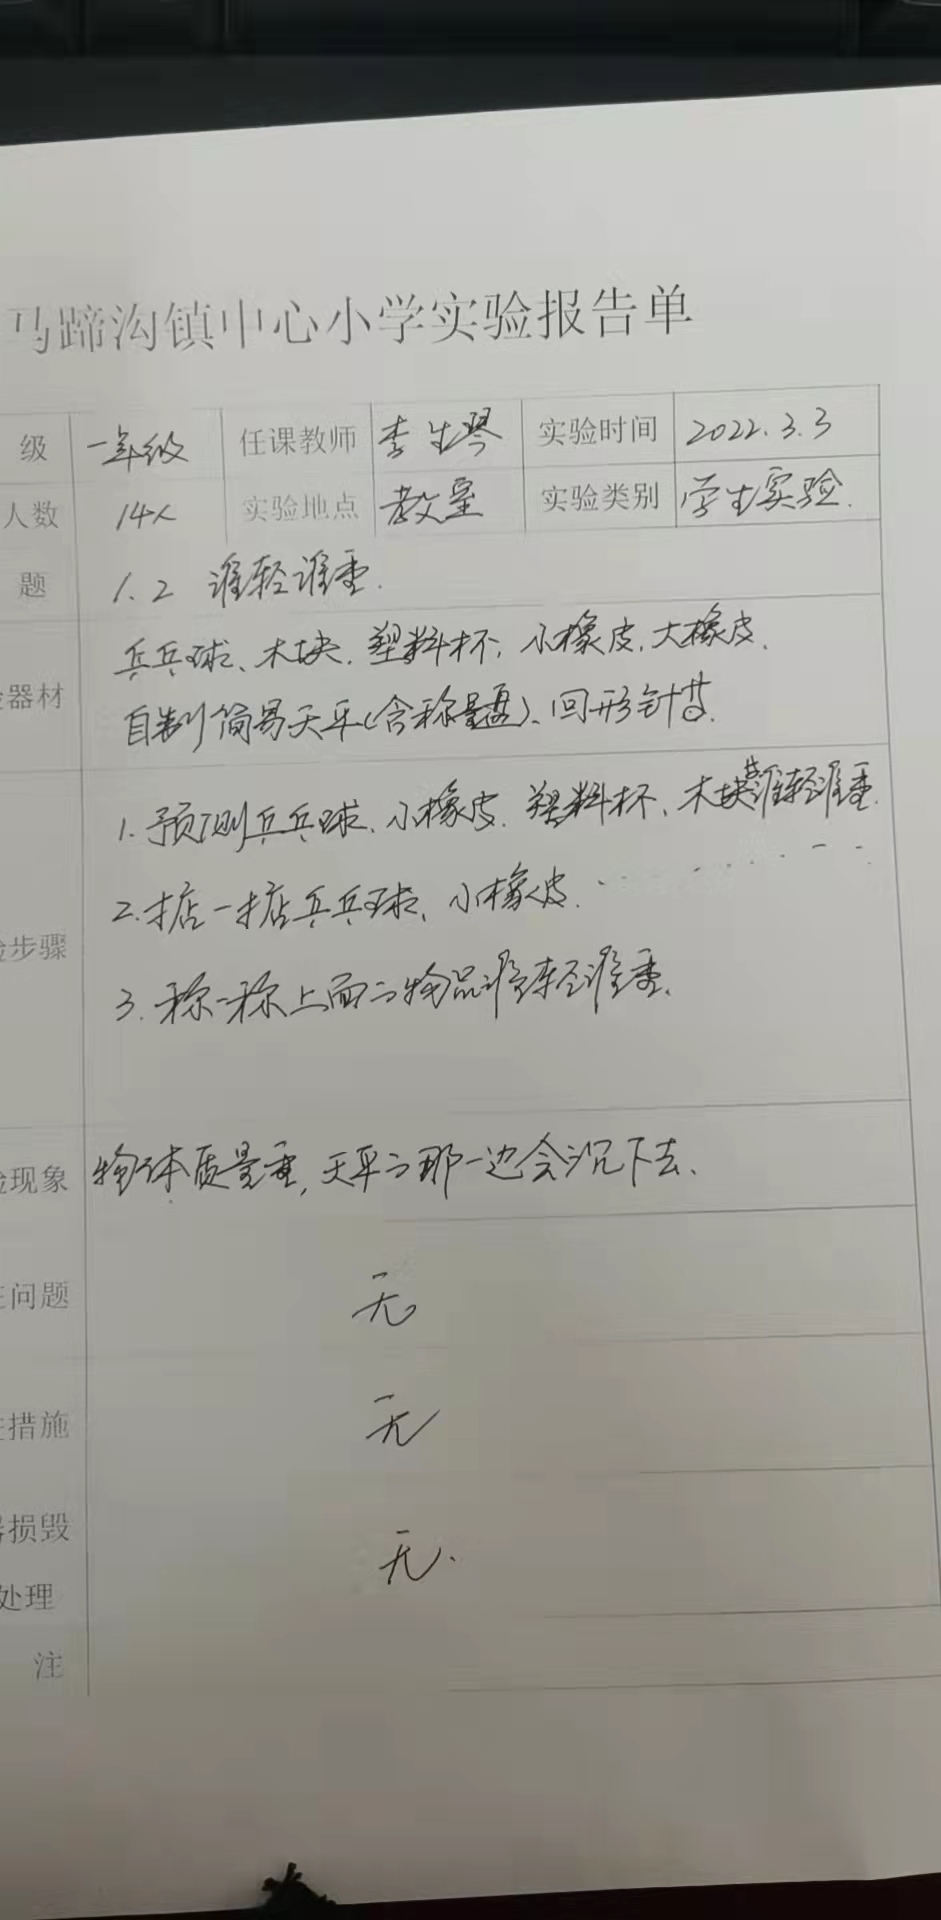 马蹄沟镇中心小学实验报告单
级 一年级 任课教师 李生琴 实验时间 2022.3.3
人数 14人 实验地点 教室 实验类别 学生实验.
题 1.2 谁轻谁重.
器材 乒乓球、木块、塑料杯、小橡皮、大橡皮、
自制简易天平(含称量盘)、回形针其.
1. 预测乒乓球、小橡皮、塑料杯、木块谁轻谁重.
2. 掂一掂乒乓球、小橡皮.
步骤
3. 称一称上面的物品谁轻谁重.
现象 物体质量重,天平的那一边会沉下去.
问题 无
措施 无
损毁
无.
处理
注